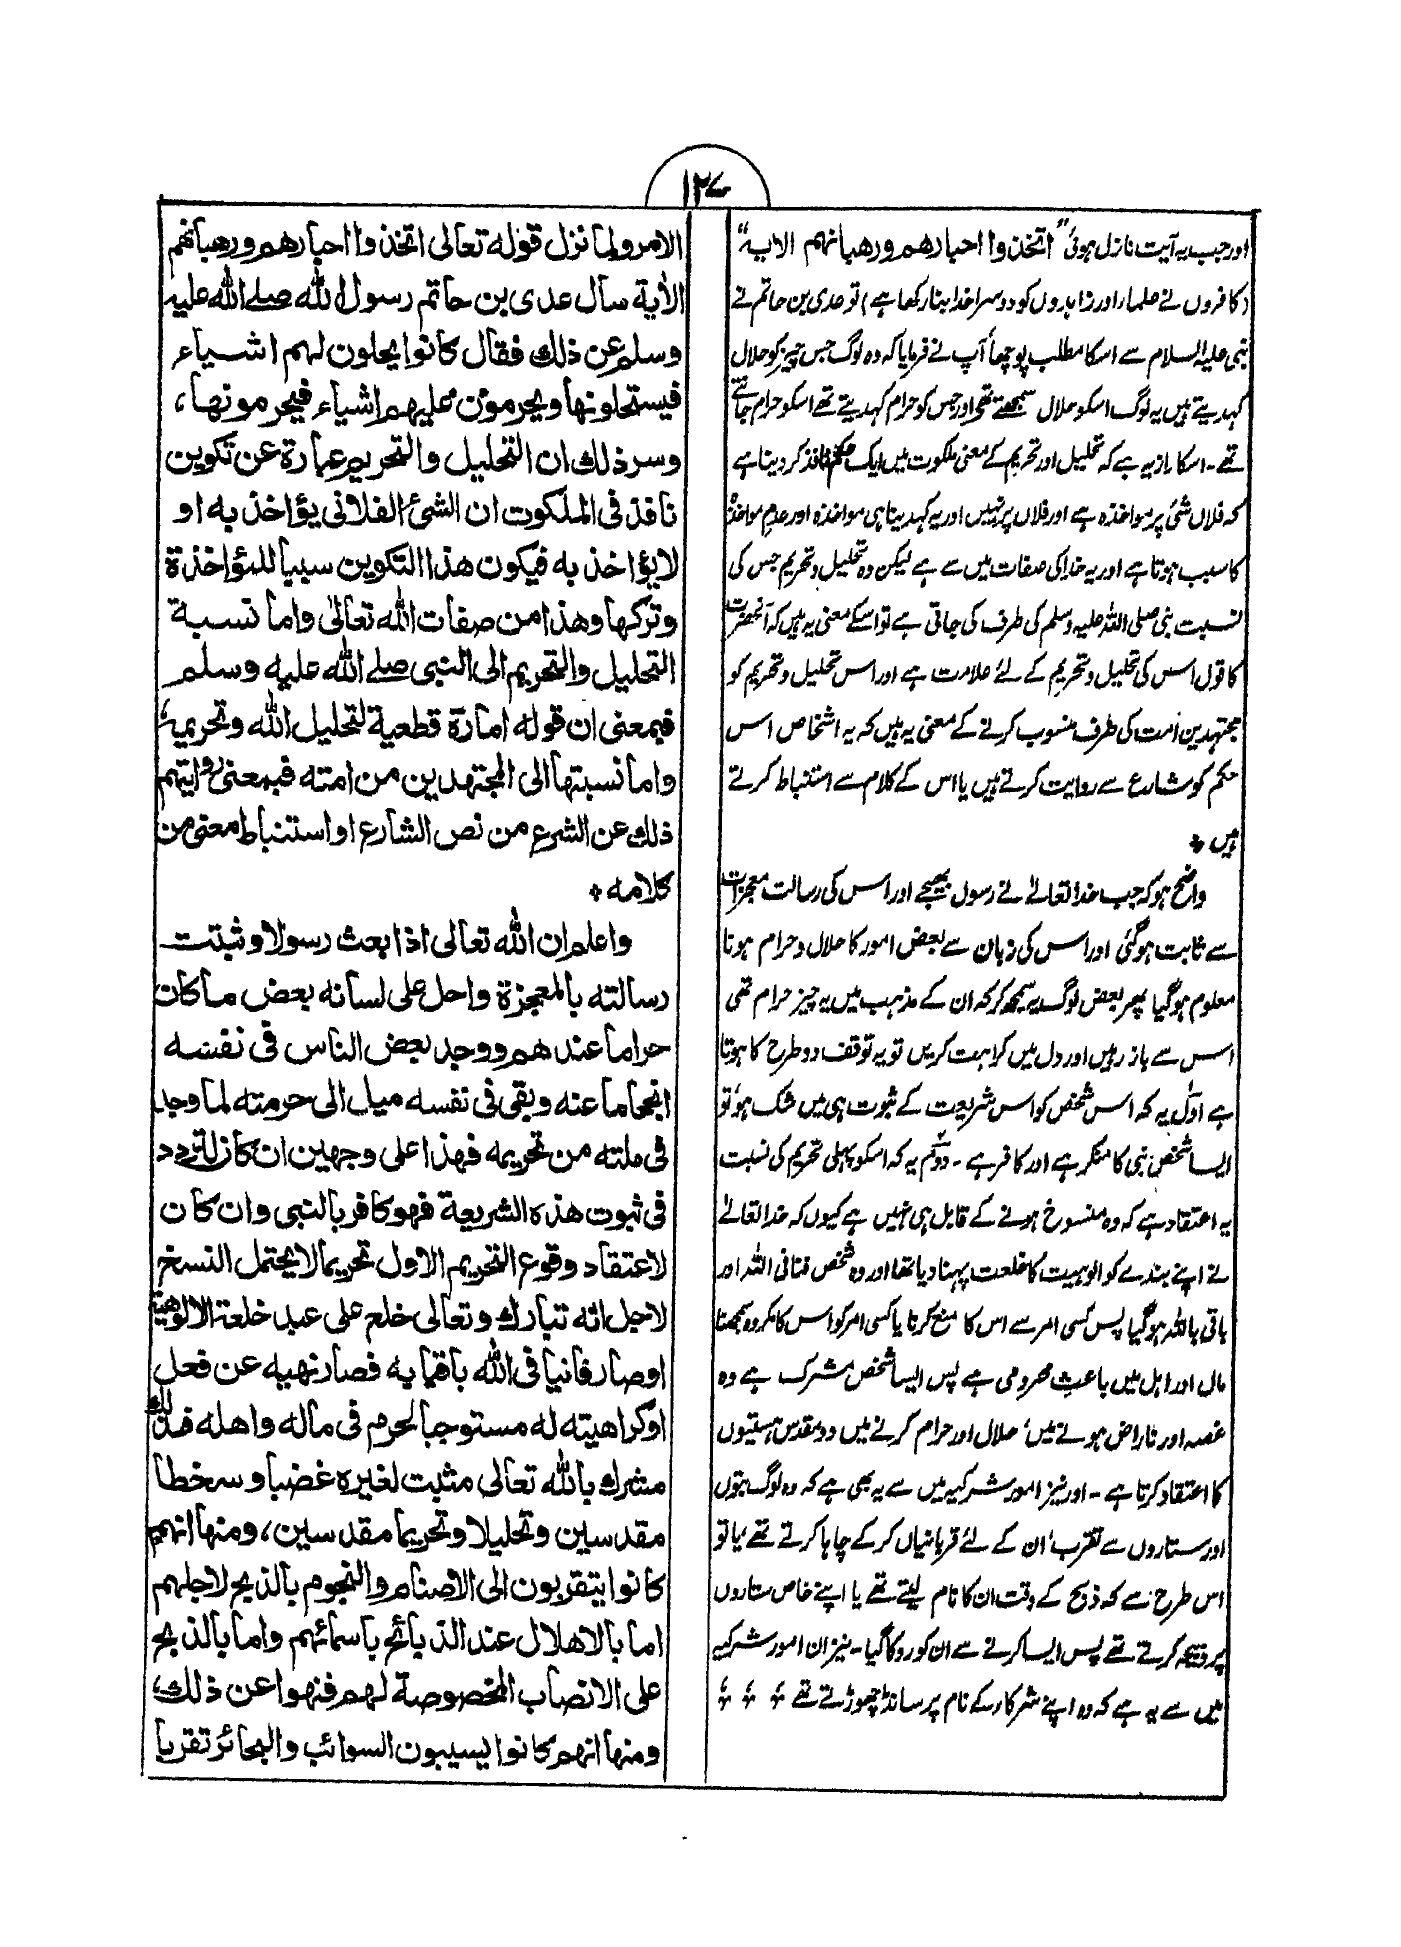 ۱۲۷
اور جب یہ آیت نازل ہوئی "اتخذوا احبارهم ورهبانهم الاية"
(کافروں نے علماء اور زاہدوں کو دوسرا خدا بنا رکھا ہے) تو عدی بن حاتم نے
نبی علیہ السلام سے اسکا مطلب پوچھا آپ نے فرمایا کہ وہ لوگ جس چیز کو حلال
کہدیتے ہیں یہ لوگ اسکو حلال سمجھتے تھے اور جس کو حرام کہدیتے تھے اسکو حرام جانتے
تھے۔ اسکا راز یہ ہے کہ تحلیل اور تحریم کے معنی ملکوت میں ایک حکم نافذ کردینا ہے
کہ فلاں شئ پر مواخذہ ہے اور فلاں پر نہیں اور یہ کہدینا ہی مواخذہ اور عدم مواخذہ
کا سبب ہوتا ہے اور یہ خدا کی صفات میں سے ہے لیکن وہ تحلیل و تحریم جس کی
نسبت نبی صلی اللہ علیہ وسلم کی طرف کی جاتی ہے تو اسکے معنی یہ ہیں کہ آنحضرت
کا قول اس کی تحلیل و تحریم کے لئے علامت ہے اور اس تحلیل و تحریم کو
مجتہدین امت کی طرف منسوب کرنے کے معنی یہ ہیں کہ یہ اشخاص اس
حکم کو شارع سے روایت کرتے ہیں یا اس کے کلام سے استنباط کرتے
ہیں ٭
واضح ہو کہ جب خدا تعالےٰ نے رسول بھیجے اور اس کی رسالت معجزات
سے ثابت ہوگئی اور اس کی زبان سے بعض امور کا حلال و حرام ہونا
معلوم ہوگیا پھر بعض لوگ یہ سمجھ کر کہ ان کے مذہب میں یہ چیز حرام تھی
اس سے باز رہیں اور دل میں کراہت کریں تو یہ توقف دو طرح کا ہوتا
ہے اوّل یہ کہ اس شخص کو اس شریعت کے ثبوت ہی میں شک ہو تو
ایسا شخص نبی کا منکر ہے اور کافر ہے۔ دوئم یہ کہ اسکو پہلی تحریم کی نسبت
یہ اعتقاد ہے کہ وہ منسوخ ہونے کے قابل ہی نہیں ہے کیوں کہ خدا تعالےٰ
نے اپنے بندے کو الوہیت کا خلعت پہنا دیا تھا اور وہ شخص فنافی اللہ اور
باقی باللہ ہوگیا پس کسی امر سے اس کا منع کرنا یا کسی امر کو اس کا مکروہ سمجھنا
مال اور اہل میں باعث محرومی ہے پس ایسا شخص مشرک ہے وہ
غصہ اور ناراض ہونے میں، حلال اور حرام کرنے میں دو مقدس ہستیوں
کا اعتقاد کرتا ہے۔ اور نیز امور شرکیہ میں سے یہ بھی ہے کہ وہ لوگ بتوں
اور ستاروں سے تقرب، ان کے لئے قربانیاں کرکے چاہا کرتے تھے، یا تو
اس طرح سے کہ ذبح کے وقت ان کا نام لیتے تھے یا اپنے خاص ستاروں
پر ذبیحہ کرتے تھے پس ایسا کرنے سے ان کو روکا گیا۔ نیز ان امور شرکیہ
میں سے یہ ہے کہ وہ اپنے شرکاء کے نام پر سانڈ چھوڑتے تھے ٭ ٭ ٭
الامر ولما نزل قوله تعالى اتخذوا احبارهم ورهبانهم
الاٰية سأل عدى بن حاتم رسول الله صلے الله عليه
وسلم عن ذلك فقال كانوا يحلون لهم اشياء
فيستحلونها ويحرمون عليهم اشياء فيحرمونها،
وسر ذلك ان التحليل والتحريم عبارة عن تكوين
نافذ فى الملكوت ان الشئ الفلانى يؤاخذ به او
لا يؤاخذ به فيكون هذا التكوين سببا للمؤاخذة
وتركها وهذا من صفات الله تعالىٰ واما نسبة
التحليل والتحريم الى النبى صلے الله عليه وسلم
فبمعنى ان قوله امارة قطعية لتحليل الله وتحريمه،
واما نسبتها الى المجتهدين من امته فبمعنى روايتهم
ذلك عن الشرع من نص الشارع او استنباط معنى من
كلامه ٭
واعلم ان الله تعالى اذا بعث رسولا وثبتت
رسالته بالمعجزة واحل على لسانه بعض ما كان
حراما عندهم ووجد بعض الناس فى نفسه
انحجاما عنه وبقى فى نفسه ميل الى حرمته لما وجد
فى ملته من تحريمه فهذا على وجهين ان كان لتردد
فى ثبوت هذه الشريعة فهو كافر بالنبى وان كان
لاعتقاد وقوع التحريم الاول تحريما لا يحتمل النسخ
لاجل انه تبارك وتعالى خلع على عبد خلعة الالوهية
او صار فانيا فى الله باقيا به فصار نهيه عن فعل
او كراهيته له مستوجبا لحرم فى ماله واهله فذلك
مشرك بالله تعالى مثبت لغيره غضبا وسخطا
مقدسين وتحليلا وتحريما مقدسين، ومنها انهم
كانوا يتقربون الى الاصنام والنجوم بالذبح لاجلهم
اما بالاهلال عند الذبائح باسمائهم واما بالذبح
على الانصاب المخصوصة لهم فنهوا عن ذلك،
ومنها انهم كانوا يسيبون السوائب والبحائر تقربا